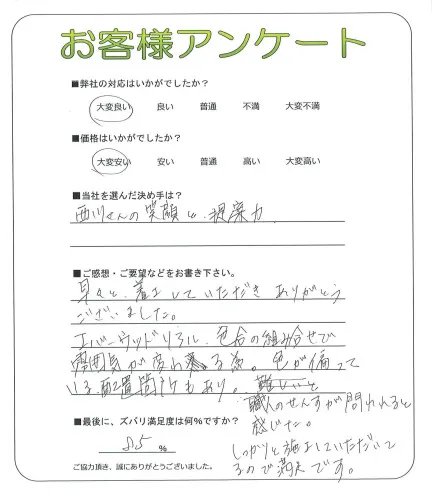 お客様アンケート
■弊社の対応はいかがでしたか？
大変良い 良い 普通 不満 大変不満
■価格はいかがでしたか？
大変安い 安い 普通 高い 大変高い
■当社を選んだ決め手は？
西川さんの笑顔と、提案力
■ご感想・ご要望などをお書き下さい。
早々と、着工していただきありがとう
ございました。
エバーウッドリアル、色合の組み合せで
雰囲気が変わる為。色が偏って
いる配置箇所もあり。難しいと
職人のせんすが問われると
感じた。
しっかりと施工していただいて
るので満足です。
■最後に、ズバリ満足度は何%ですか？
85 %
ご協力頂き、誠にありがとうございました。